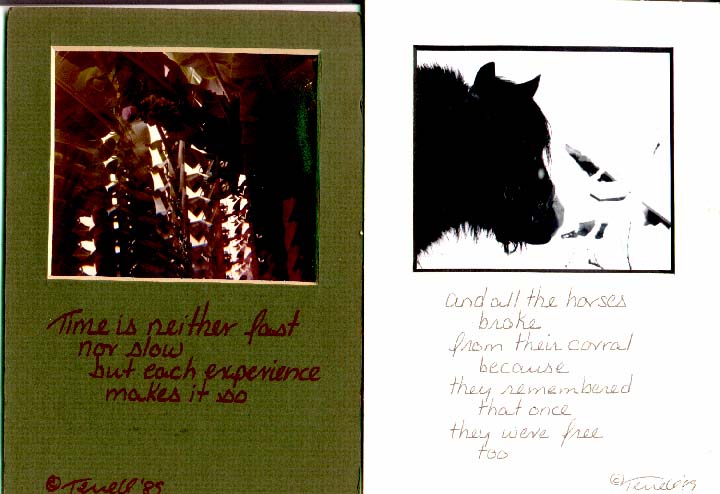 Time is neither fast
nor slow
but each experience
makes it so
© Terrell '89
and all the horses
broke
from their corral
because
they remembered
that once
they were free
too
© Terrell '89